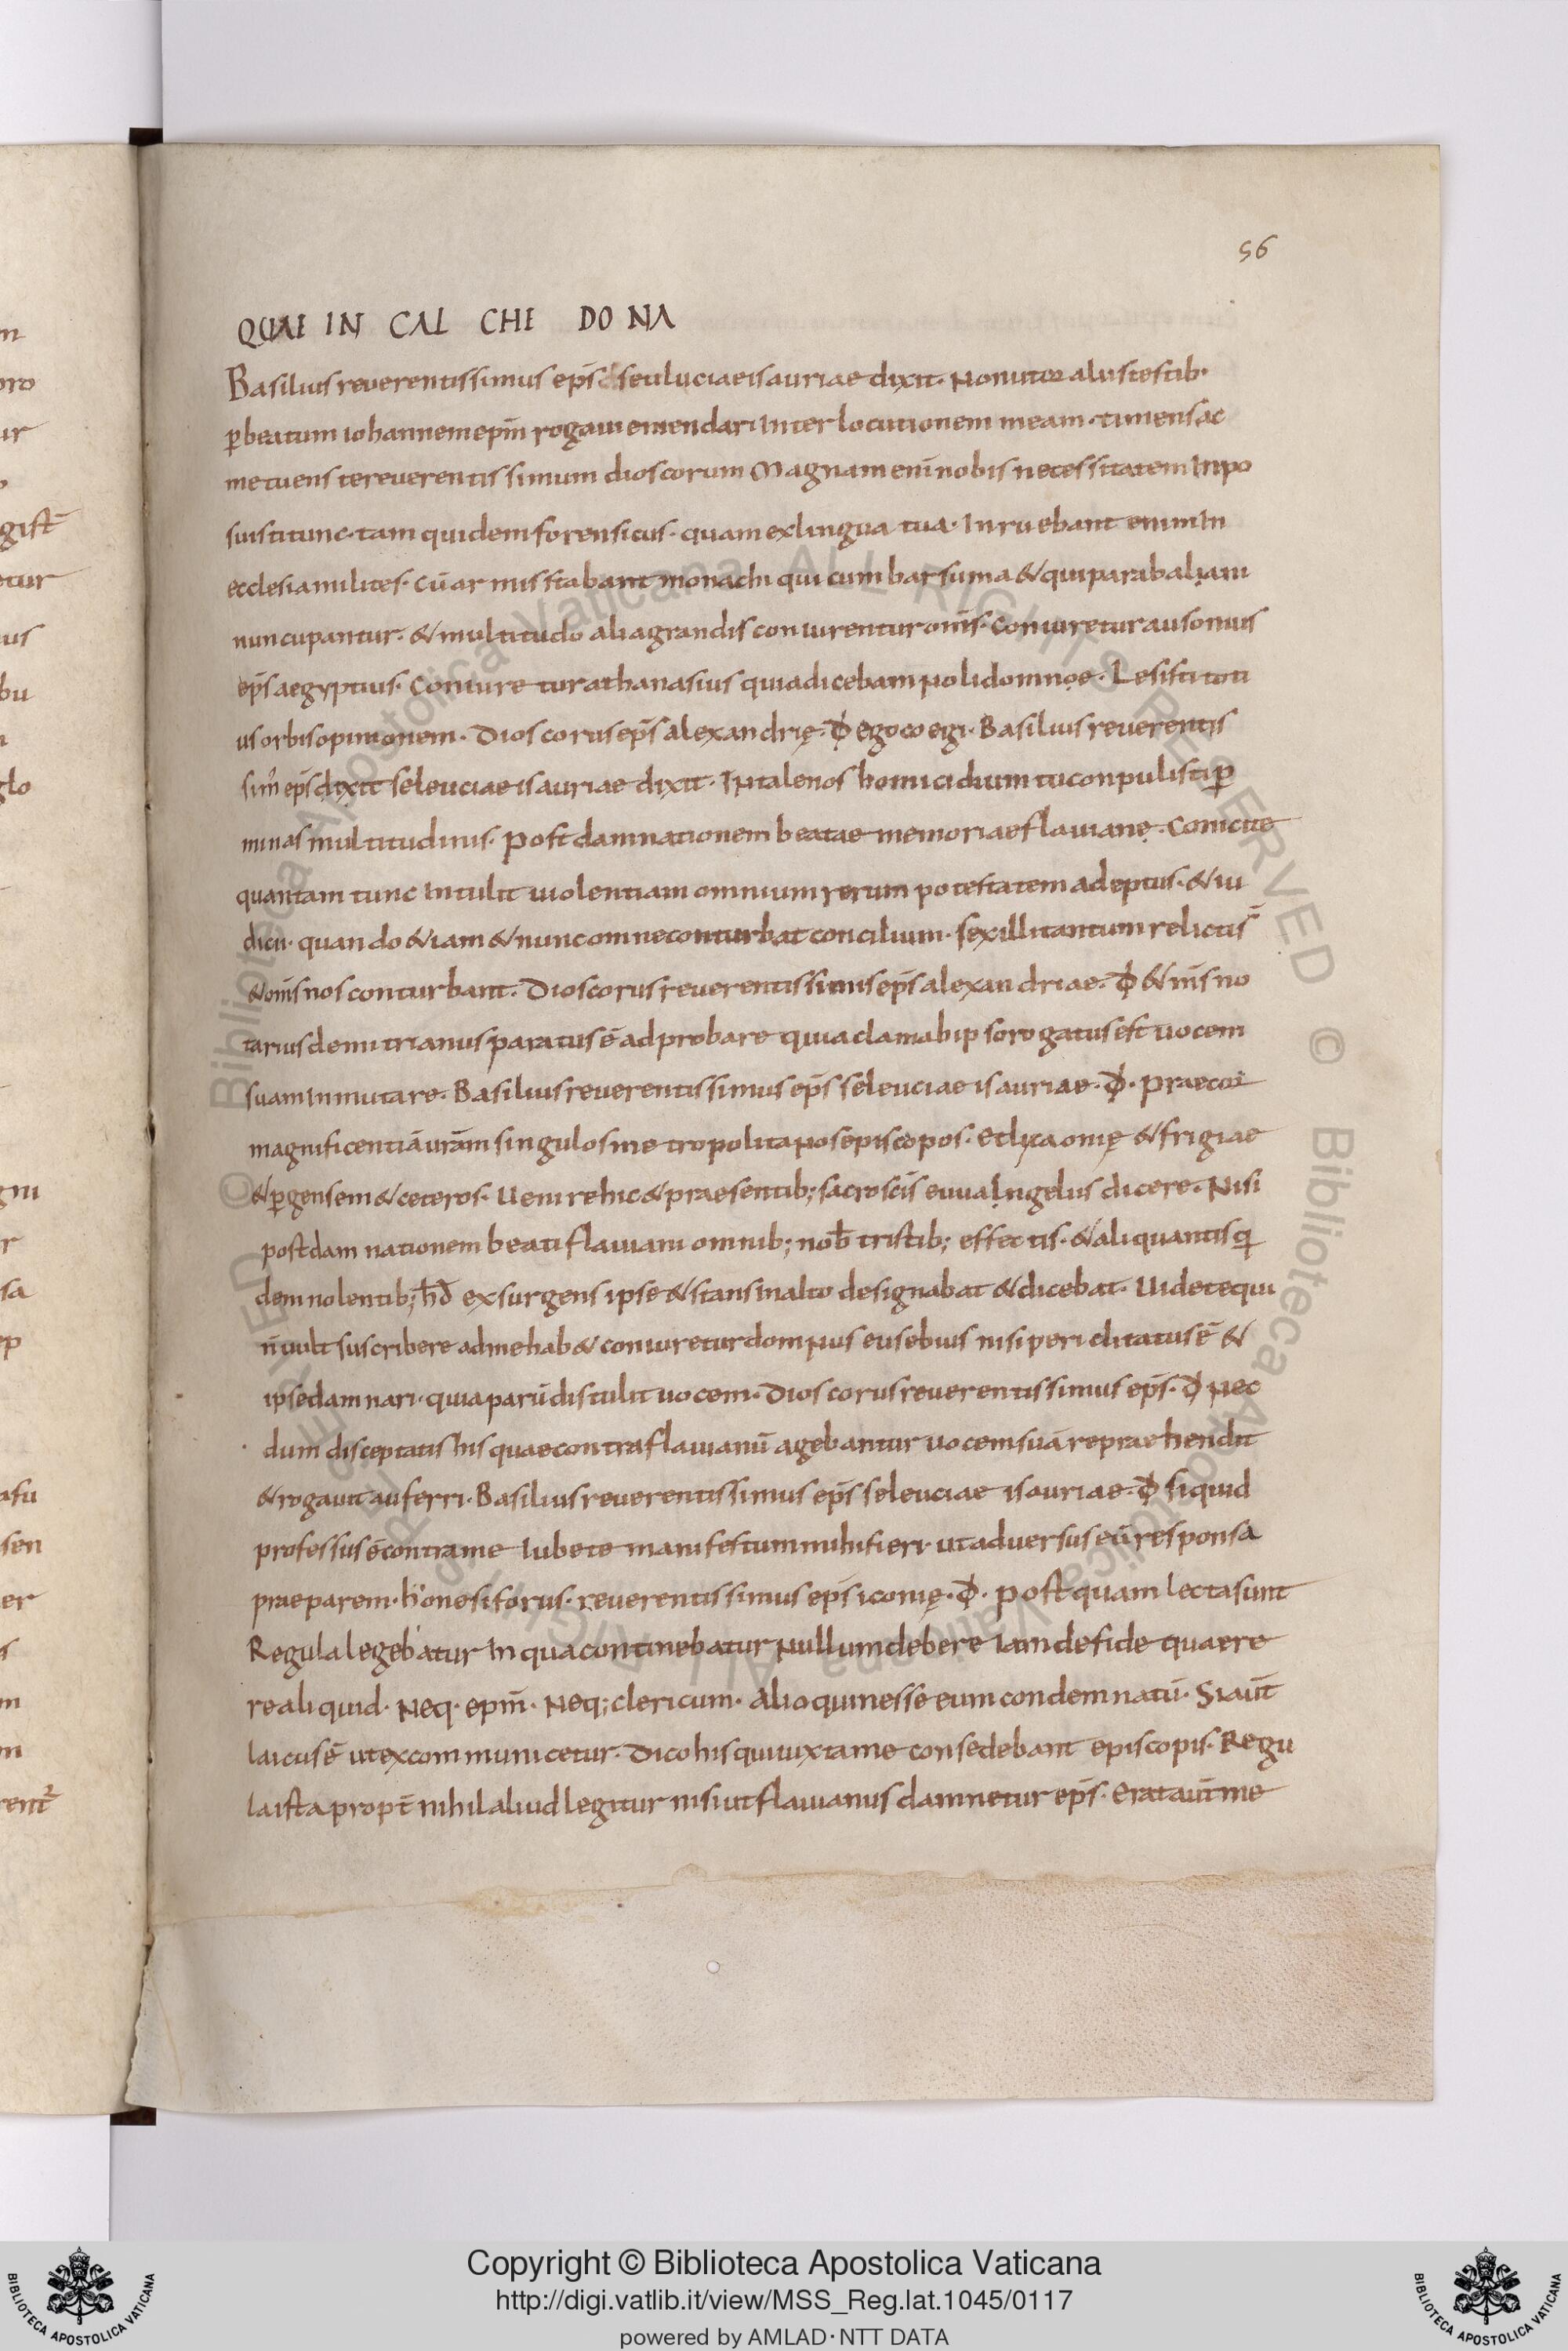 56
QUAE IN CAL CHE DO NA
Basilius reverentissimus ep̄s seuluciae isauriae dixit. Non utor aliis testib·
ꝑ beatum iohannem ep̄m rogavi emendari Inter locutionem meam · timens ac
metuens te reuerentissimum dioscorum Magnam eni nobis necessitatem Inpo
suisti tunc · tam quidem forensicus · quam ex lingua tua · Inruebant enim In
ecclesia milites · Cū armis stabant monachi qui cum barsuma & qui parabaliani
nuncupantur · & multitudo alia grandis coniurentur om̄s · Coniuretur ausonius
ep̄s aegyptius · Coniuretur athanasius quia dicebam Noli domne · Lesisti toti
us orbis opinionem · Dioscorus ep̄s alexandrię · Đ ego coegi · Basilius reverentis
sim' ep̄s dixit seleuciae isauriae dixit · In tale nos homicidium tu conpulisti ꝑ
minas multitudinis · Post damnationem beatae memoriae flauianę · Conicite
quantam tunc Intulit uiolentiam omnium rerum potestatem adeptus · & iu
dicii · quando &iam & nunc omne conturbat concilium · sex illi tantum relictis
& om̄s nos conturbant · Dioscorus reuerentissimus ep̄s alexandriae · Đ & m̄s no
tarius demitrianus paratus ē adprobare quia clam ab ipso rogatus est uocem
suam Inmutare · Basilius reverentissimus ep̄s seleuciae isauriae · Đ · Praecor
magnificentiā urām singulos metropolitanos episcopos · et lycaonię & frigiae
& ꝑgensem & ceteros · Uenire hic & praesentib; sacros̄cīs euuangelus dicere · Nisi
post damnationem beati flauiani omnib; nob̄ tristib; effectis · & aliquantis qi
dem nolentib; exsurgens ipse & stans In alto designabat & dicebat · Uidete qui
n̄ uult suscribere ad me hab& coniuretur domnus eusebius nisi periclitatus ē &
ipse damnari · quia parū distulit uocem · Dioscorus reuerentissimus ep̄s · Đ Nec
dum disceptatis his quae contra flauianū agebantur uocem suā repraehendit
& rogauit auferri · Basilius reverentissimus ep̄s seleuciae isauriae · Đ siquid
professus ē contra me Iubete manifestum mihi fieri · ut aduersus eū responsa
praeparem · honesiforus · reverentissimus ep̄s iconię · Đ · postquam lecta sunt
Regula legebatur In qua continebatur Nullum debere Iam de fide quaere
re aliquid · Neq · ep̄m · Neq; clericum · Alioquin esse eum condemnatū · Si aūt
laicus ē ut excommunicetur · Dico his qui iuxta me consedebant episcopis · Regu
la ista propt̄ nihil aliud legitur nisi ut flauianus damnetur ep̄s · Erat aūt me
Copyright © Biblioteca Apostolica Vaticana
http://digi.vatlib.it/view/MSS_Reg.lat.1045/0117
powered by AMLAD·NTT DATA
BIBLIOTECA APOSTOLICA VATICANA
BIBLIOTECA APOSTOLICA VATICANA